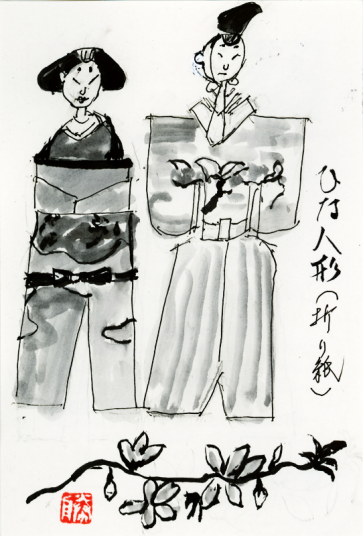 ひな人形(折り紙)